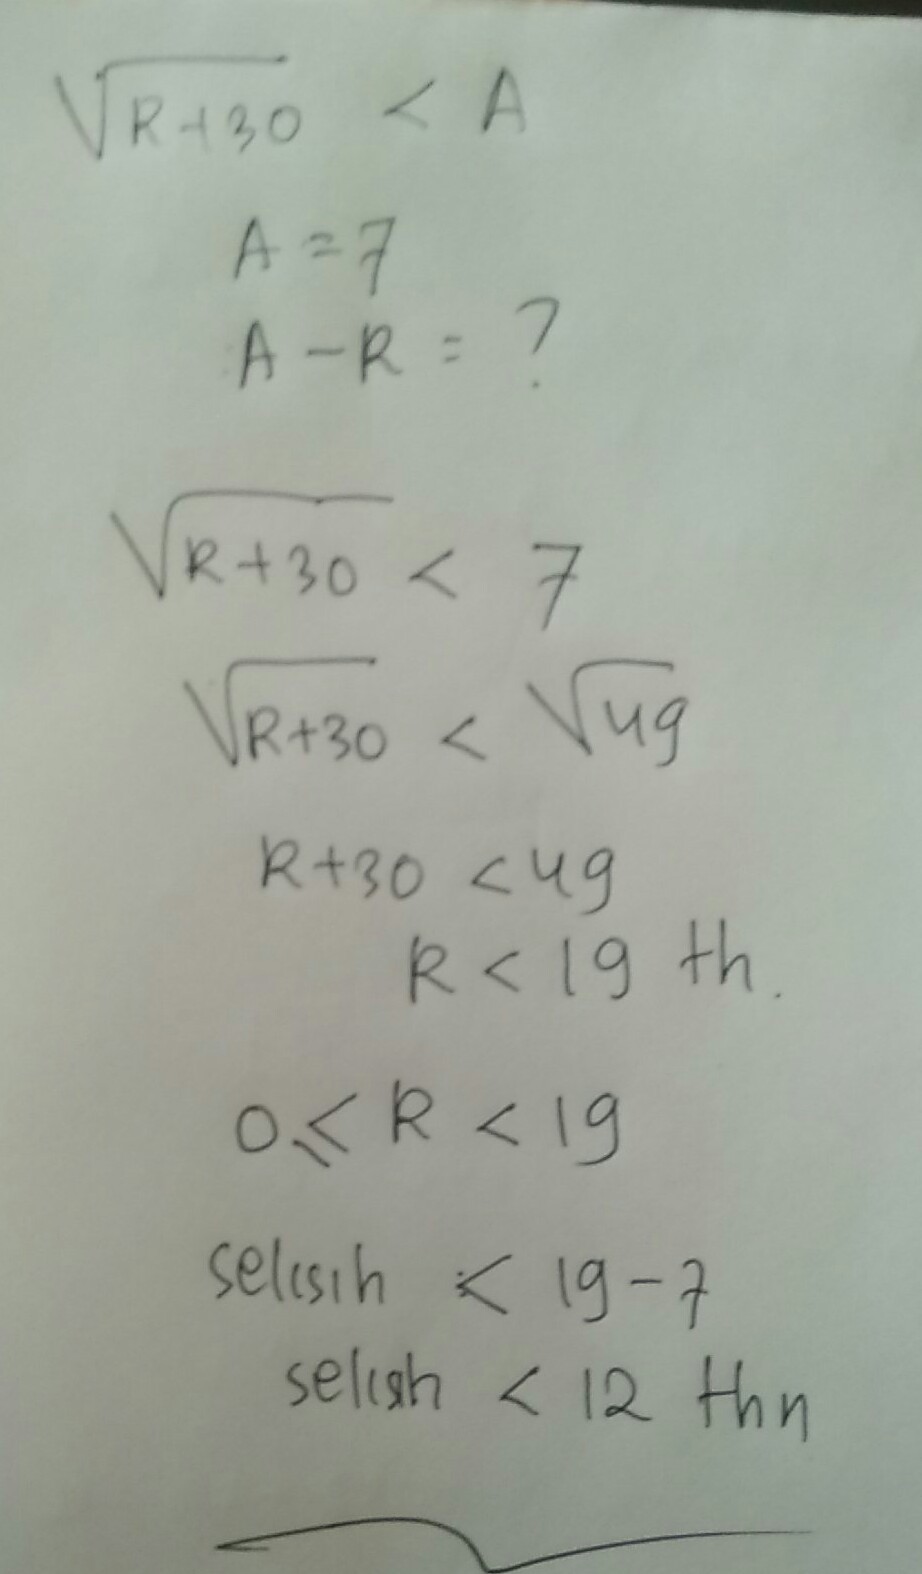 √R+30 < A
A = 7
A - R = ?
√R+30 < 7
√R+30 < √49
R+30 < 49
R < 19 th.
0 ≤ R < 19
selisih < 19 - 7
selisih < 12 thn